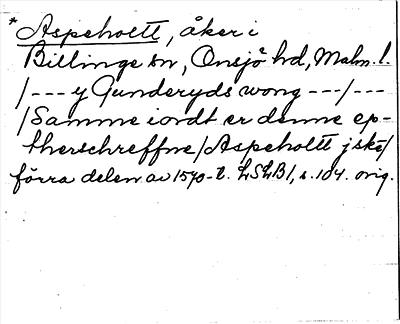 * Aspeholtt, åker i
Billinge sn, Onsjö hd, Malm. l.
/--- y Gunderyds wong ---/---
/Samme iordt er denne ep-
therschreffne/Aspeholtt j ske/
förra delen av 1570-t. LSLB1, s. 104. orig.